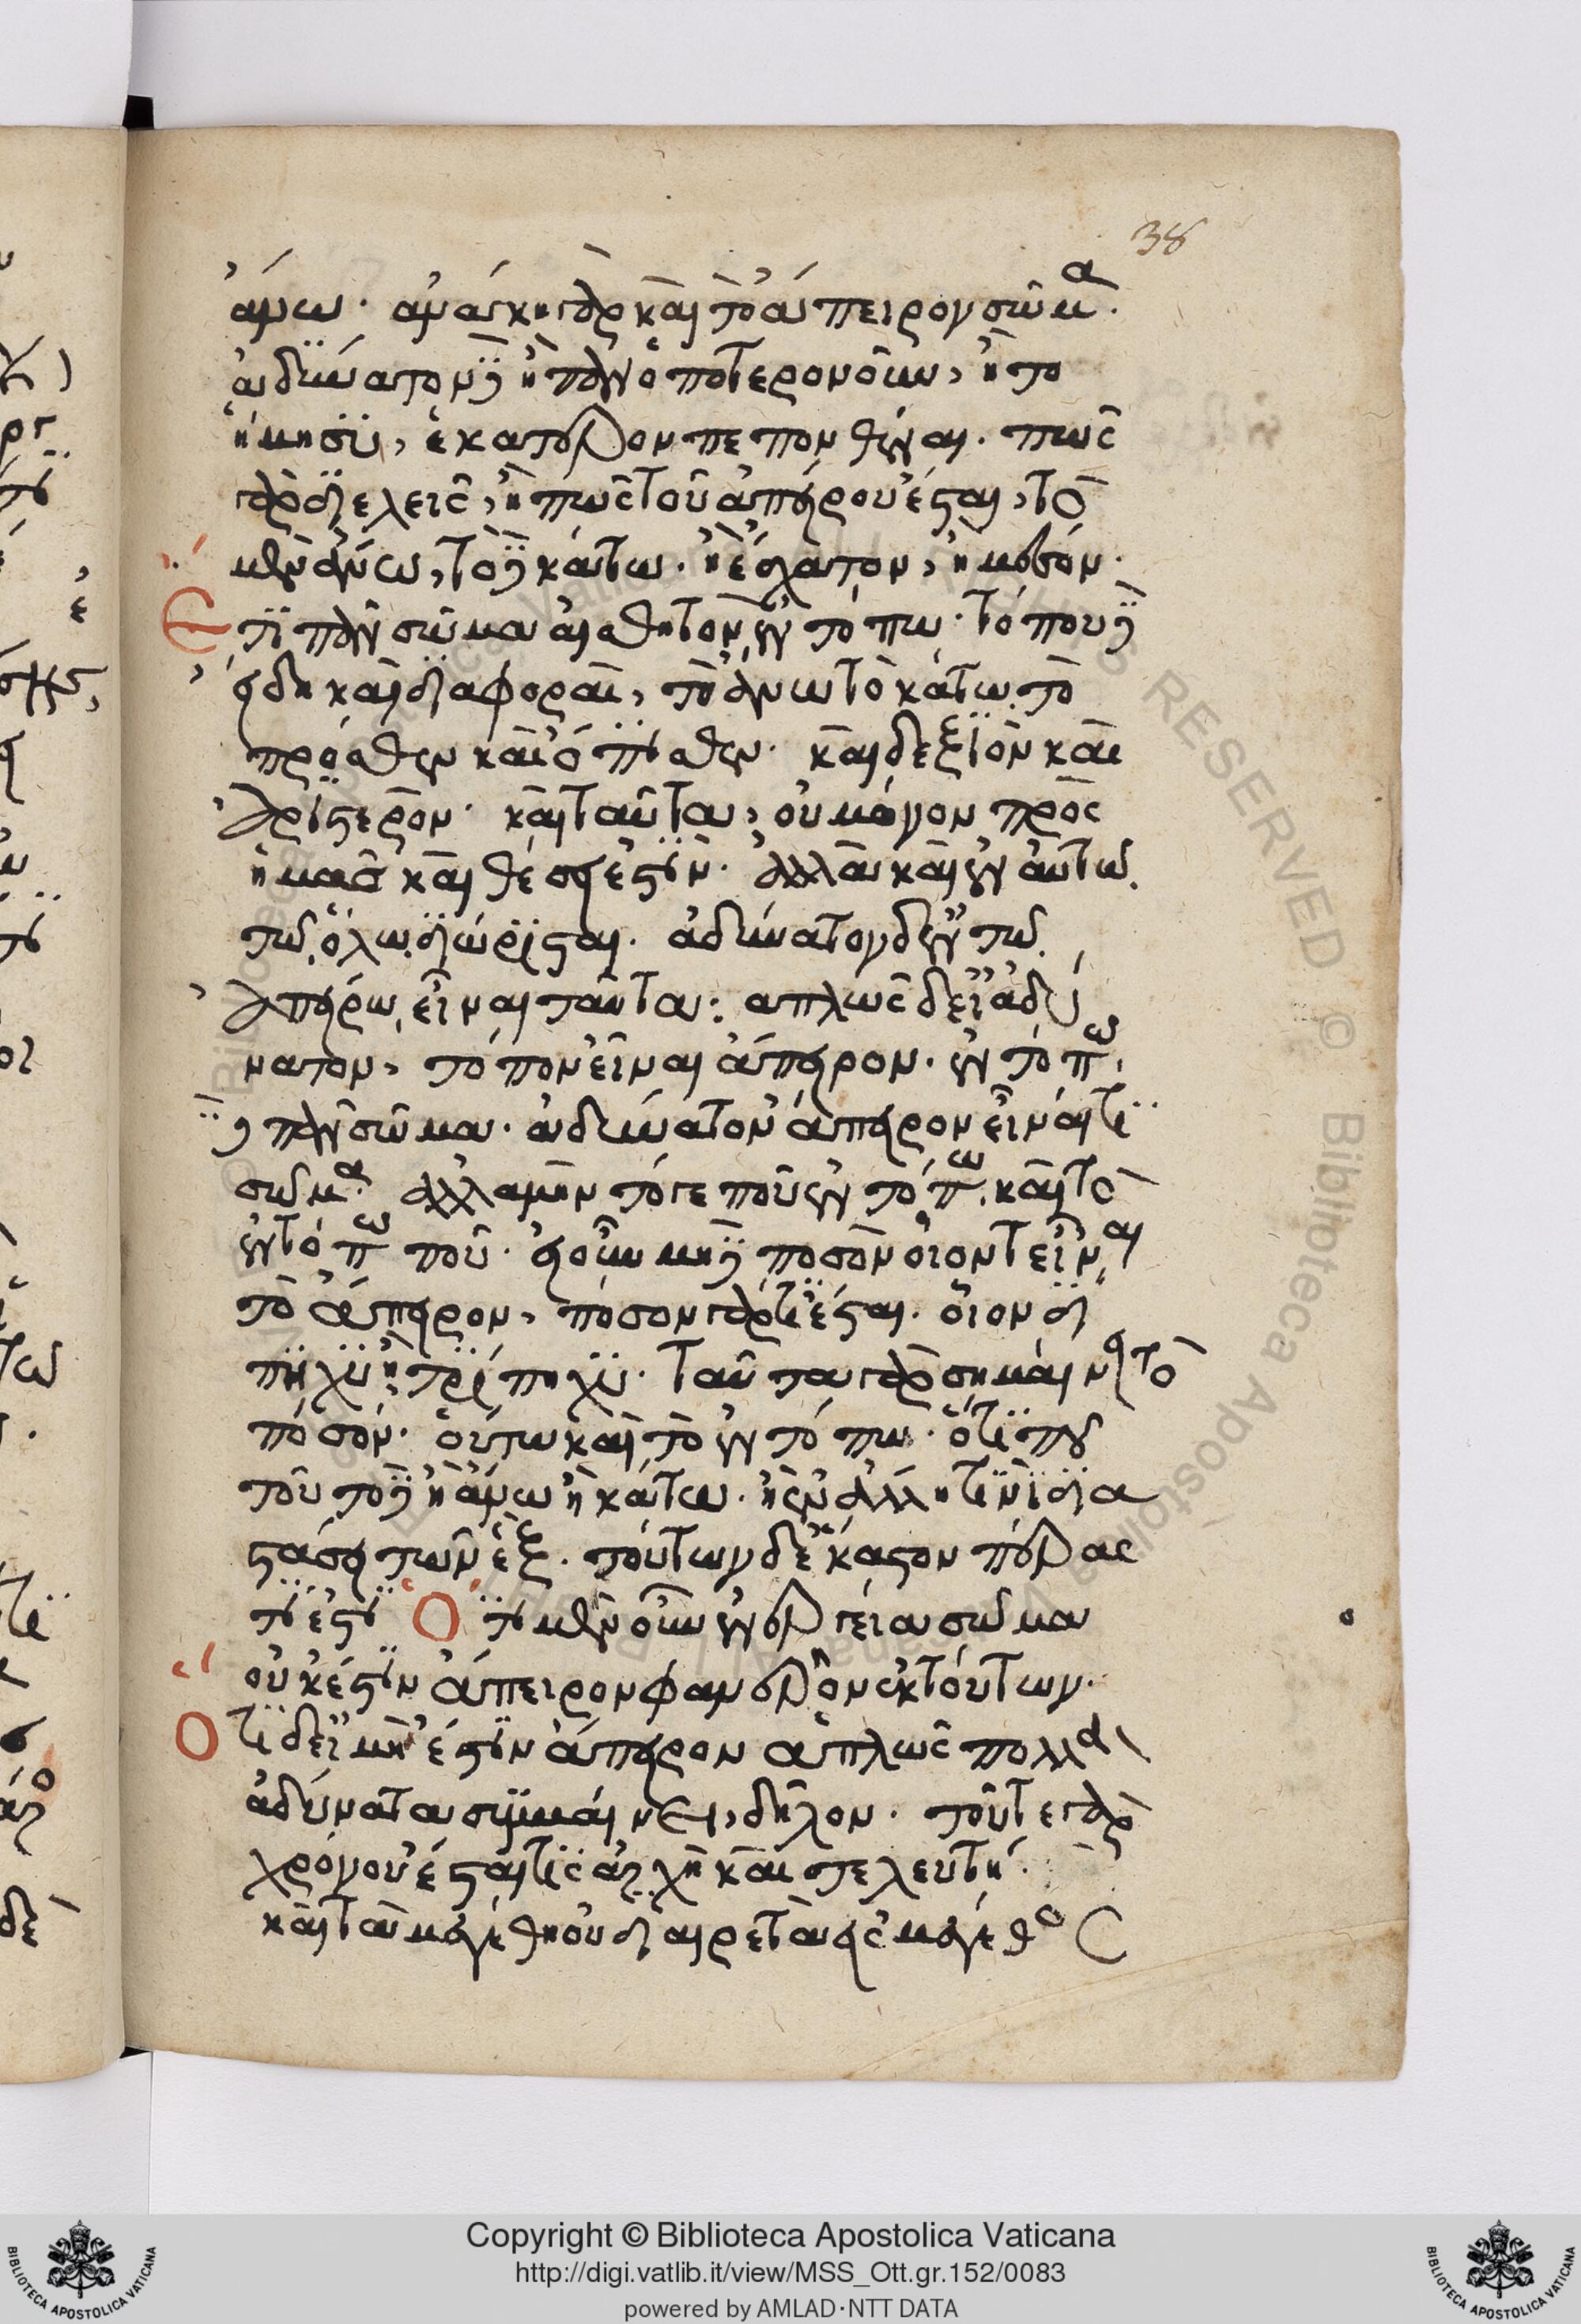 38
ἄνω. ἀνάγκη γὰρ καὶ τὸ ἄπειρον σῶμα.
ἀδύνατον δὲ ἢ πᾶν ὁποτερονοῦν, ἢ τὸ
ἥμισυ, ἑκάτερον πεπονθέναι. πῶς
γὰρ διελεῖς, ἢ πῶς τοῦ ἀπείρου ἔσται, τὸ
μὲν ἄνω, τὸ δὲ κάτω. ἢ ἔσχατον, ἢ μέσον.
Ἔτι πᾶν σῶμα αἰσθητὸν ἐν τόπῳ. τόπου δὲ
εἴδη καὶ διαφοραὶ, τὸ ἄνω τὸ κάτω. τὸ
πρόσθεν καὶ ὄπισθεν. καὶ δεξιὸν καὶ
ἀριστερόν. καὶ ταῦτα, οὐ μόνον πρὸς
ἡμᾶς καὶ θέσει ἐστίν. ἀλλὰ καὶ ἐν αὐτῷ
τῷ ὅλῳ διώρισται. ἀδύνατον δ' ἐν τῷ
ἀπείρῳ εἶναι ταῦτα. ἁπλῶς δ' εἰ ἀδύ
νατον, τόπον εἶναι ἄπειρον. ἐν τόπῳ
δὲ πᾶν σῶμα. ἀδύνατον ἄπειρον εἶναί τι
σῶμα. ἀλλὰ μὴν τό γε ποῦ ἐν τόπῳ. καὶ τὸ
ἐν τόπῳ ποῦ. εἰ οὖν μηδὲ ποσὸν οἷόντ' εἶναι
τὸ ἄπειρον, πόσον γάρ τι ἔσται. οἷον δί
πηχυ ἢ τρίπηχυ. ταῦτα γὰρ σημαίνει τὸ
ποσόν. οὕτω καὶ τὸ ἐν τόπῳ. ὅτι ποῦ
τοῦτο δὲ ἢ ἄνω ἢ κάτω. ἢ ἐν ἄλλῃ τινὶ δια
στάσει τῶν ἕξ. τούτων δ' ἕκαστον πέρας
τί ἐστι Ὅτι μὲν οὖν ἐνεργείᾳ σῶμα
οὐκ ἔστιν ἄπειρον φανερὸν ἐκ τούτων.
Ὅτι δ' εἰ μὴ ἔστιν ἄπειρον ἁπλῶς πολλὰ
ἀδύνατα συμβαίνει, δῆλον. τοῦ τε γὰρ
χρόνου ἔσται τις ἀρχὴ καὶ τελευτή.
καὶ τὰ μεγέθη οὐ διαιρετὰ εἰς μεγέθη
Copyright © Biblioteca Apostolica Vaticana
http://digi.vatlib.it/view/MSS_Ott.gr.152/0083
powered by AMLAD·NTT DATA